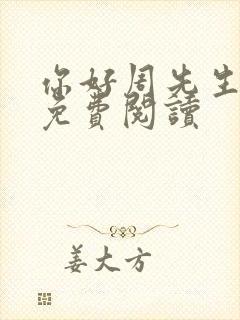 你好周先生
免費閱讀
姜大方